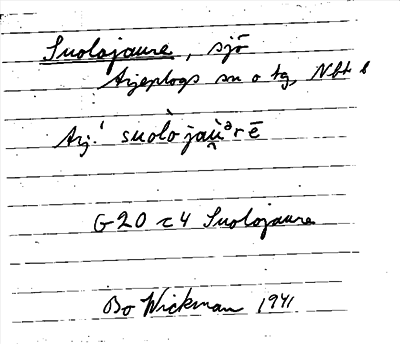 Suolojaure, sjö
Arjeplogs sn o tg, Nbt l
Arj. ˈsuolò jau̯ᵊrē
G 20 c 4 Suolojaure
Bo Wickman 1941